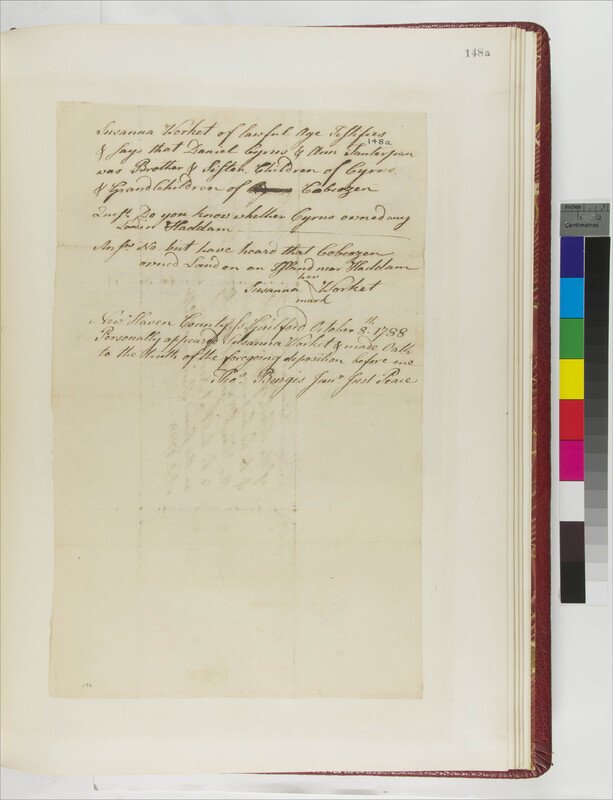 148a
Susanna Worket of lawful Age Testifies
148a
& Says that Daniel Cyrus & Ann Tanterpan
was Brother & Sister, Children of Cyrus
& Grandchildren of Cobcozen
Quest. Do you know whether Cyrus owned any
Land in Haddam
Ansr. No but have heard that Cobcozen
owned Land on an Island near Haddam
her
Susanna Worket
mark
New Haven County Ss Guilford October 8.th 1788
Personally appeared Susanna Worket & made Oath
to the truth of the foregoing deposition before me
Thos. Burgis Junr. Just Peace
Inches
Centimetres